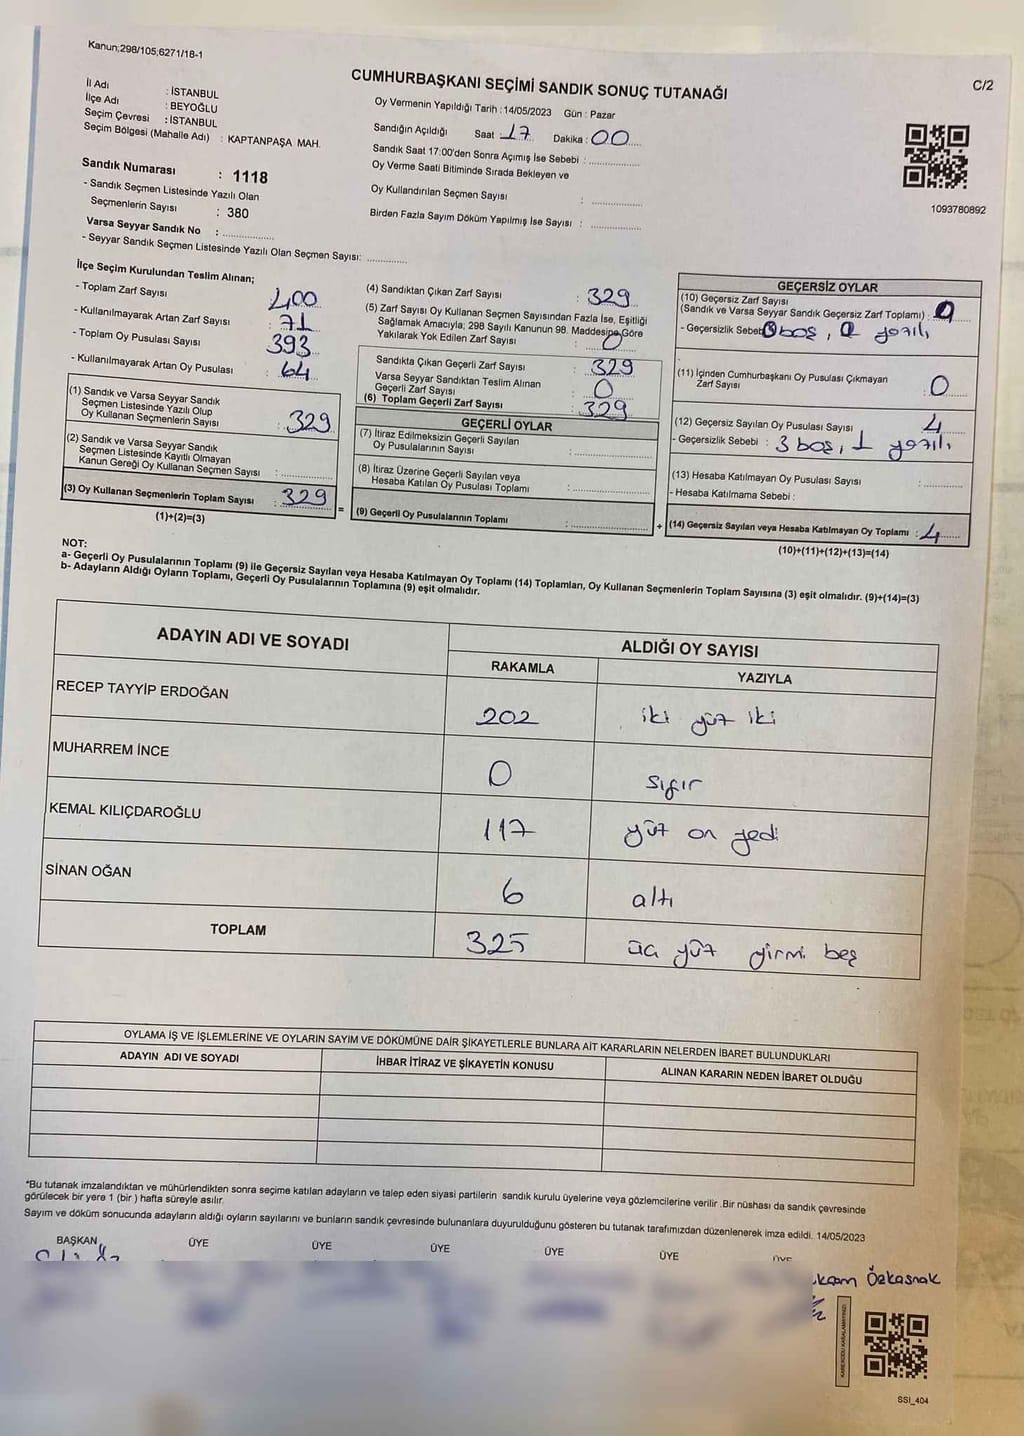 Kanun;298/105;6271/18-1
CUMHURBAŞKANI SEÇİMİ SANDIK SONUÇ TUTANAĞI
C/2
İl Adı : İSTANBUL
İlçe Adı : BEYOĞLU
Seçim Çevresi : İSTANBUL
Seçim Bölgesi (Mahalle Adı) : KAPTANPAŞA MAH.
Oy Vermenin Yapıldığı Tarih : 14/05/2023 Gün : Pazar
Sandığın Açıldığı Saat : 17 Dakika : 00
Sandık Saat 17:00'den Sonra Açımış İse Sebebi :
Oy Verme Saati Bitiminde Sırada Bekleyen ve
Oy Kullandırılan Seçmen Sayısı :
Birden Fazla Sayım Döküm Yapılmış İse Sayısı :
1093780892
Sandık Numarası : 1118
- Sandık Seçmen Listesinde Yazılı Olan
Seçmenlerin Sayısı : 380
Varsa Seyyar Sandık No :
- Seyyar Sandık Seçmen Listesinde Yazılı Olan Seçmen Sayısı:
İlçe Seçim Kurulundan Teslim Alınan;
- Toplam Zarf Sayısı : 400
- Kullanılmayarak Artan Zarf Sayısı : 71
- Toplam Oy Pusulası Sayısı : 393
- Kullanılmayarak Artan Oy Pusulası : 64
(1) Sandık ve Varsa Seyyar Sandık
Seçmen Listesinde Yazılı Olup
Oy Kullanan Seçmenlerin Sayısı : 329
(2) Sandık ve Varsa Seyyar Sandık
Seçmen Listesinde Kayıtlı Olmayan
Kanun Gereği Oy Kullanan Seçmen Sayısı :
(3) Oy Kullanan Seçmenlerin Toplam Sayısı : 329 =
(1)+(2)=(3)
(4) Sandıktan Çıkan Zarf Sayısı : 329
(5) Zarf Sayısı Oy Kullanan Seçmen Sayısından Fazla İse, Eşitliği
Sağlamak Amacıyla; 298 Sayılı Kanunun 98. Maddesine Göre
Yakılarak Yok Edilen Zarf Sayısı : 0
Sandıkta Çıkan Geçerli Zarf Sayısı : 329
Varsa Seyyar Sandıktan Teslim Alınan
Geçerli Zarf Sayısı : 0
(6) Toplam Geçerli Zarf Sayısı : 329
GEÇERLİ OYLAR
(7) İtiraz Edilmeksizin Geçerli Sayılan
Oy Pusulalarının Sayısı :
(8) İtiraz Üzerine Geçerli Sayılan veya
Hesaba Katılan Oy Pusulası Toplamı :
(9) Geçerli Oy Pusulalarının Toplamı : +
GEÇERSİZ OYLAR
(10) Geçersiz Zarf Sayısı
(Sandık ve Varsa Seyyar Sandık Geçersiz Zarf Toplamı) :
- Geçersizlik Sebebi boş, yazılı
(11) İçinden Cumhurbaşkanı Oy Pusulası Çıkmayan
Zarf Sayısı : 0
(12) Geçersiz Sayılan Oy Pusulası Sayısı : 4
- Geçersizlik Sebebi : 3 boş, 1 yazılı
(13) Hesaba Katılmayan Oy Pusulası Sayısı :
- Hesaba Katılmama Sebebi :
(14) Geçersiz Sayılan veya Hesaba Katılmayan Oy Toplamı : 4
(10)+(11)+(12)+(13)=(14)
NOT:
a- Geçerli Oy Pusulalarının Toplamı (9) ile Geçersiz Sayılan veya Hesaba Katılmayan Oy Toplamı (14) Toplamları, Oy Kullanan Seçmenlerin Toplam Sayısına (3) eşit olmalıdır. (9)+(14)=(3)
b- Adayların Aldığı Oyların Toplamı, Geçerli Oy Pusulalarının Toplamına (9) eşit olmalıdır.
ADAYIN ADI VE SOYADI ALDIĞI OY SAYISI
RAKAMLA YAZIYLA
RECEP TAYYİP ERDOĞAN 202 iki yüz iki
MUHARREM İNCE 0 sıfır
KEMAL KILIÇDAROĞLU 117 yüz on yedi
SİNAN OĞAN 6 altı
TOPLAM 325 üç yüz yirmi beş
OYLAMA İŞ VE İŞLEMLERİNE VE OYLARIN SAYIM VE DÖKÜMÜNE DAİR ŞİKAYETLERLE BUNLARA AİT KARARLARIN NELERDEN İBARET BULUNDUKLARI
ADAYIN ADI VE SOYADI İHBAR İTİRAZ VE ŞİKAYETİN KONUSU ALINAN KARARIN NEDEN İBARET OLDUĞU
*Bu tutanak imzalandıktan ve mühürlendikten sonra seçime katılan adayların ve talep eden siyasi partilerin sandık kurulu üyelerine veya gözlemcilerine verilir .Bir nüshası da sandık çevresinde
görülecek bir yere 1 (bir ) hafta süreyle asılır.
Sayım ve döküm sonucunda adayların aldığı oyların sayılarını ve bunların sandık çevresinde bulunanlara duyurulduğunu gösteren bu tutanak tarafımızdan düzenlenerek imza edildi. 14/05/2023
BAŞKAN ÜYE ÜYE ÜYE ÜYE ÜYE ÜYE
Özkasnak
KAREKODU KARALAMAYINIZ!
SSI_404